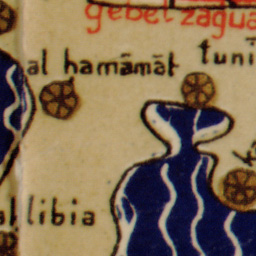 gebel zagua
al hamāmāt tunī
libia